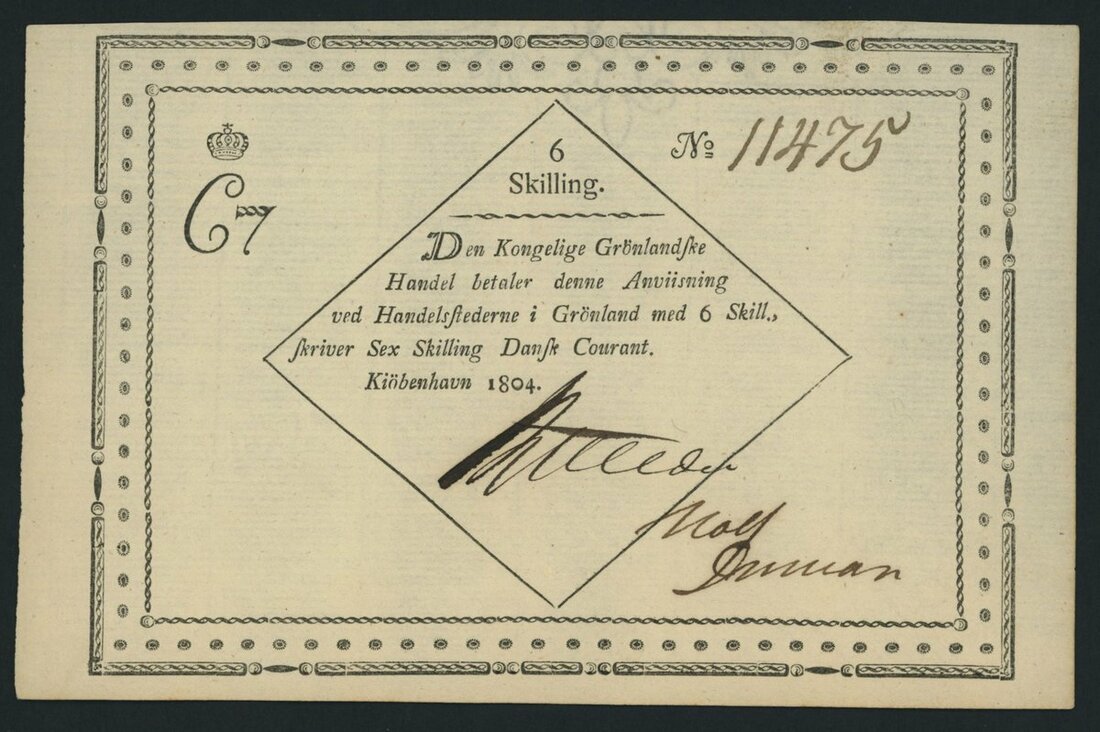 6
Skilling.
No 11475
C7
Den Kongelige Grönlandſke
Handel betaler denne Anviisning
ved Handelsſtederne i Grönland med 6 Skill.,
ſkriver Sex Skilling Danſk Courant.
Kiöbenhavn 1804.